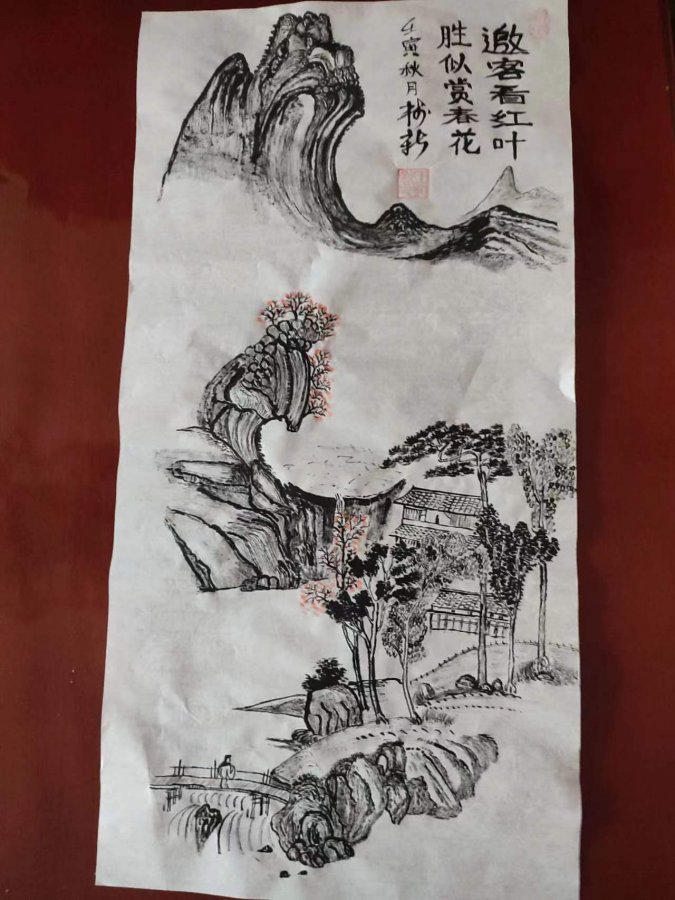 邀客看红叶
胜似赏春花
壬寅秋月